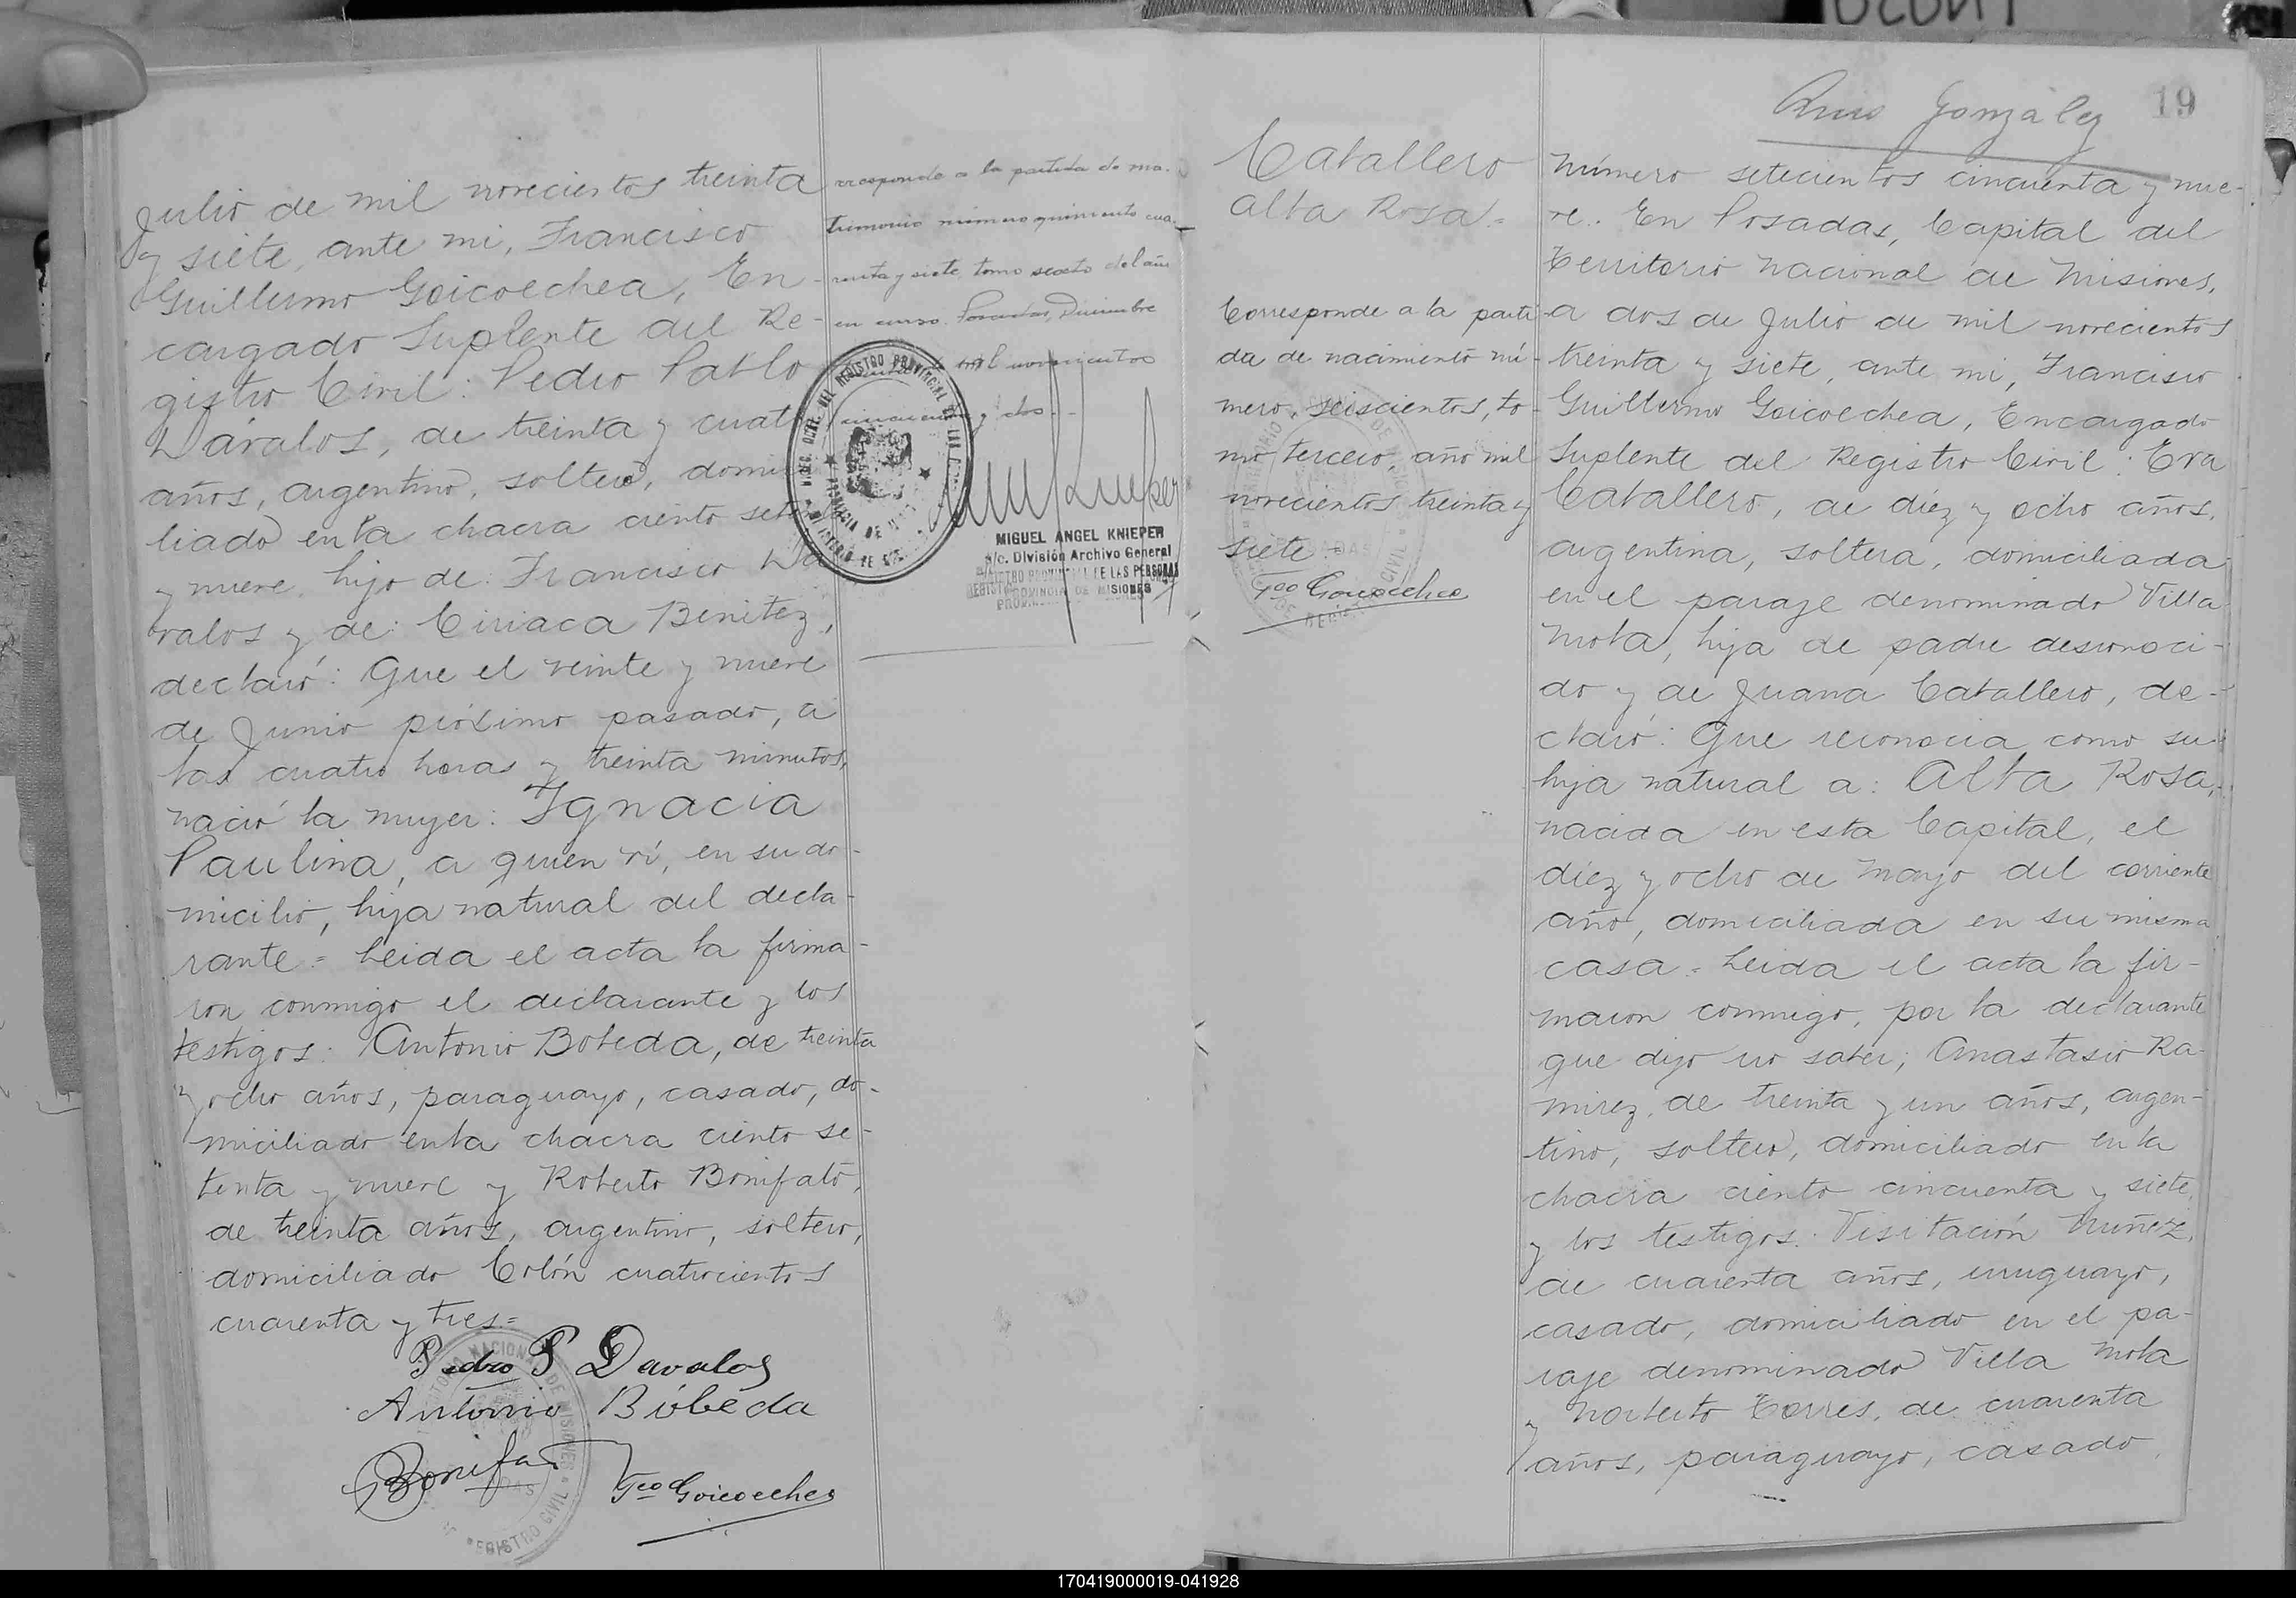 Julio de mil novecientos treinta
y siete, ante mi, Francisco
Guillermo Goicoechea, En-
cargado Suplente del Re-
gistro Civil: Pedro Pablo
Dávalos, de treinta y cuatro
años, argentino, soltero, domi
liado en la chacra ciento setenta
y nueve, hijo de: Francisco Dá
valos y de: Ciriaca Benitez,
declaró: Que el veinte y nueve
de Junio próximo pasado, a
las cuatro horas y treinta minutos,
nació la mujer: Ignacia
Paulina, a quien ví, en su do-
micilio, hija natural del decla-
rante = Leida el acta la firma-
ron conmigo el declarante y los
testigos: Antonio Bobeda, de treinta
y ocho años, paraguayo, casado, do-
miciliado en la chacra ciento se-
tenta y nueve y Roberto Bonifato,
de treinta años, argentino, soltero,
domiciliado Colón cuatrocientos
cuarenta y tres.=
Pedro P Davalos
Antonio Bóbeda
Bonifat
Gco Goicoechea
rresponde a la partida de ma-
trimonio número quiniento cua-
renta y siete, tomo sexto del año
en curso. Posadas, Diciembre
de mil novecientos
cincuenta y dos.-
MIGUEL ANGEL KNIEPER
a/c. División Archivo General
REGISTRO PROVINCIAL DE LAS PERSONAS
PROVINCIA DE MISIONES
Ruis González
19
Caballero
Alba Rosa =
Corresponde a la parti-
da de nacimiento nú-
mero, seiscientos, to-
mo tercero, año mil
novecientos treinta y
siete =
Gco Goicoechea
Número setecientos cincuenta y nue-
ve. En Posadas, Capital del
Territorio Nacional de Misiones,
a dos de Julio de mil novecientos
treinta y siete, ante mi, Francisco
Guillermo Goicoechea, Encargado
Suplente del Registro Civil: Eva
Caballero, de diez y ocho años,
argentina, soltera, domiciliada
en el paraje denominado Villa
Mola, hija de padre desconoci-
do y de Juana Caballero, de-
claró: Que reconocia como su
hija natural a: Alba Rosa,
nacida en esta Capital, el
diez y ocho de Mayo del corriente
año, domiciliada en su misma
casa = Leida el acta la fir-
maron conmigo, por la declarante
que dijo no saber, Anastasio Ra-
mirez, de treinta y un años, argen-
tino, soltero, domiciliado en la
chacra ciento cincuenta y siete,
y los testigos: Visitación Nuñez,
de cuarenta años, uruguayo,
casado, domiciliado en el pa-
raje denominado Villa Mola
y Norberto Torres, de cuarenta
años, paraguayo, casado,
170419000019-041928